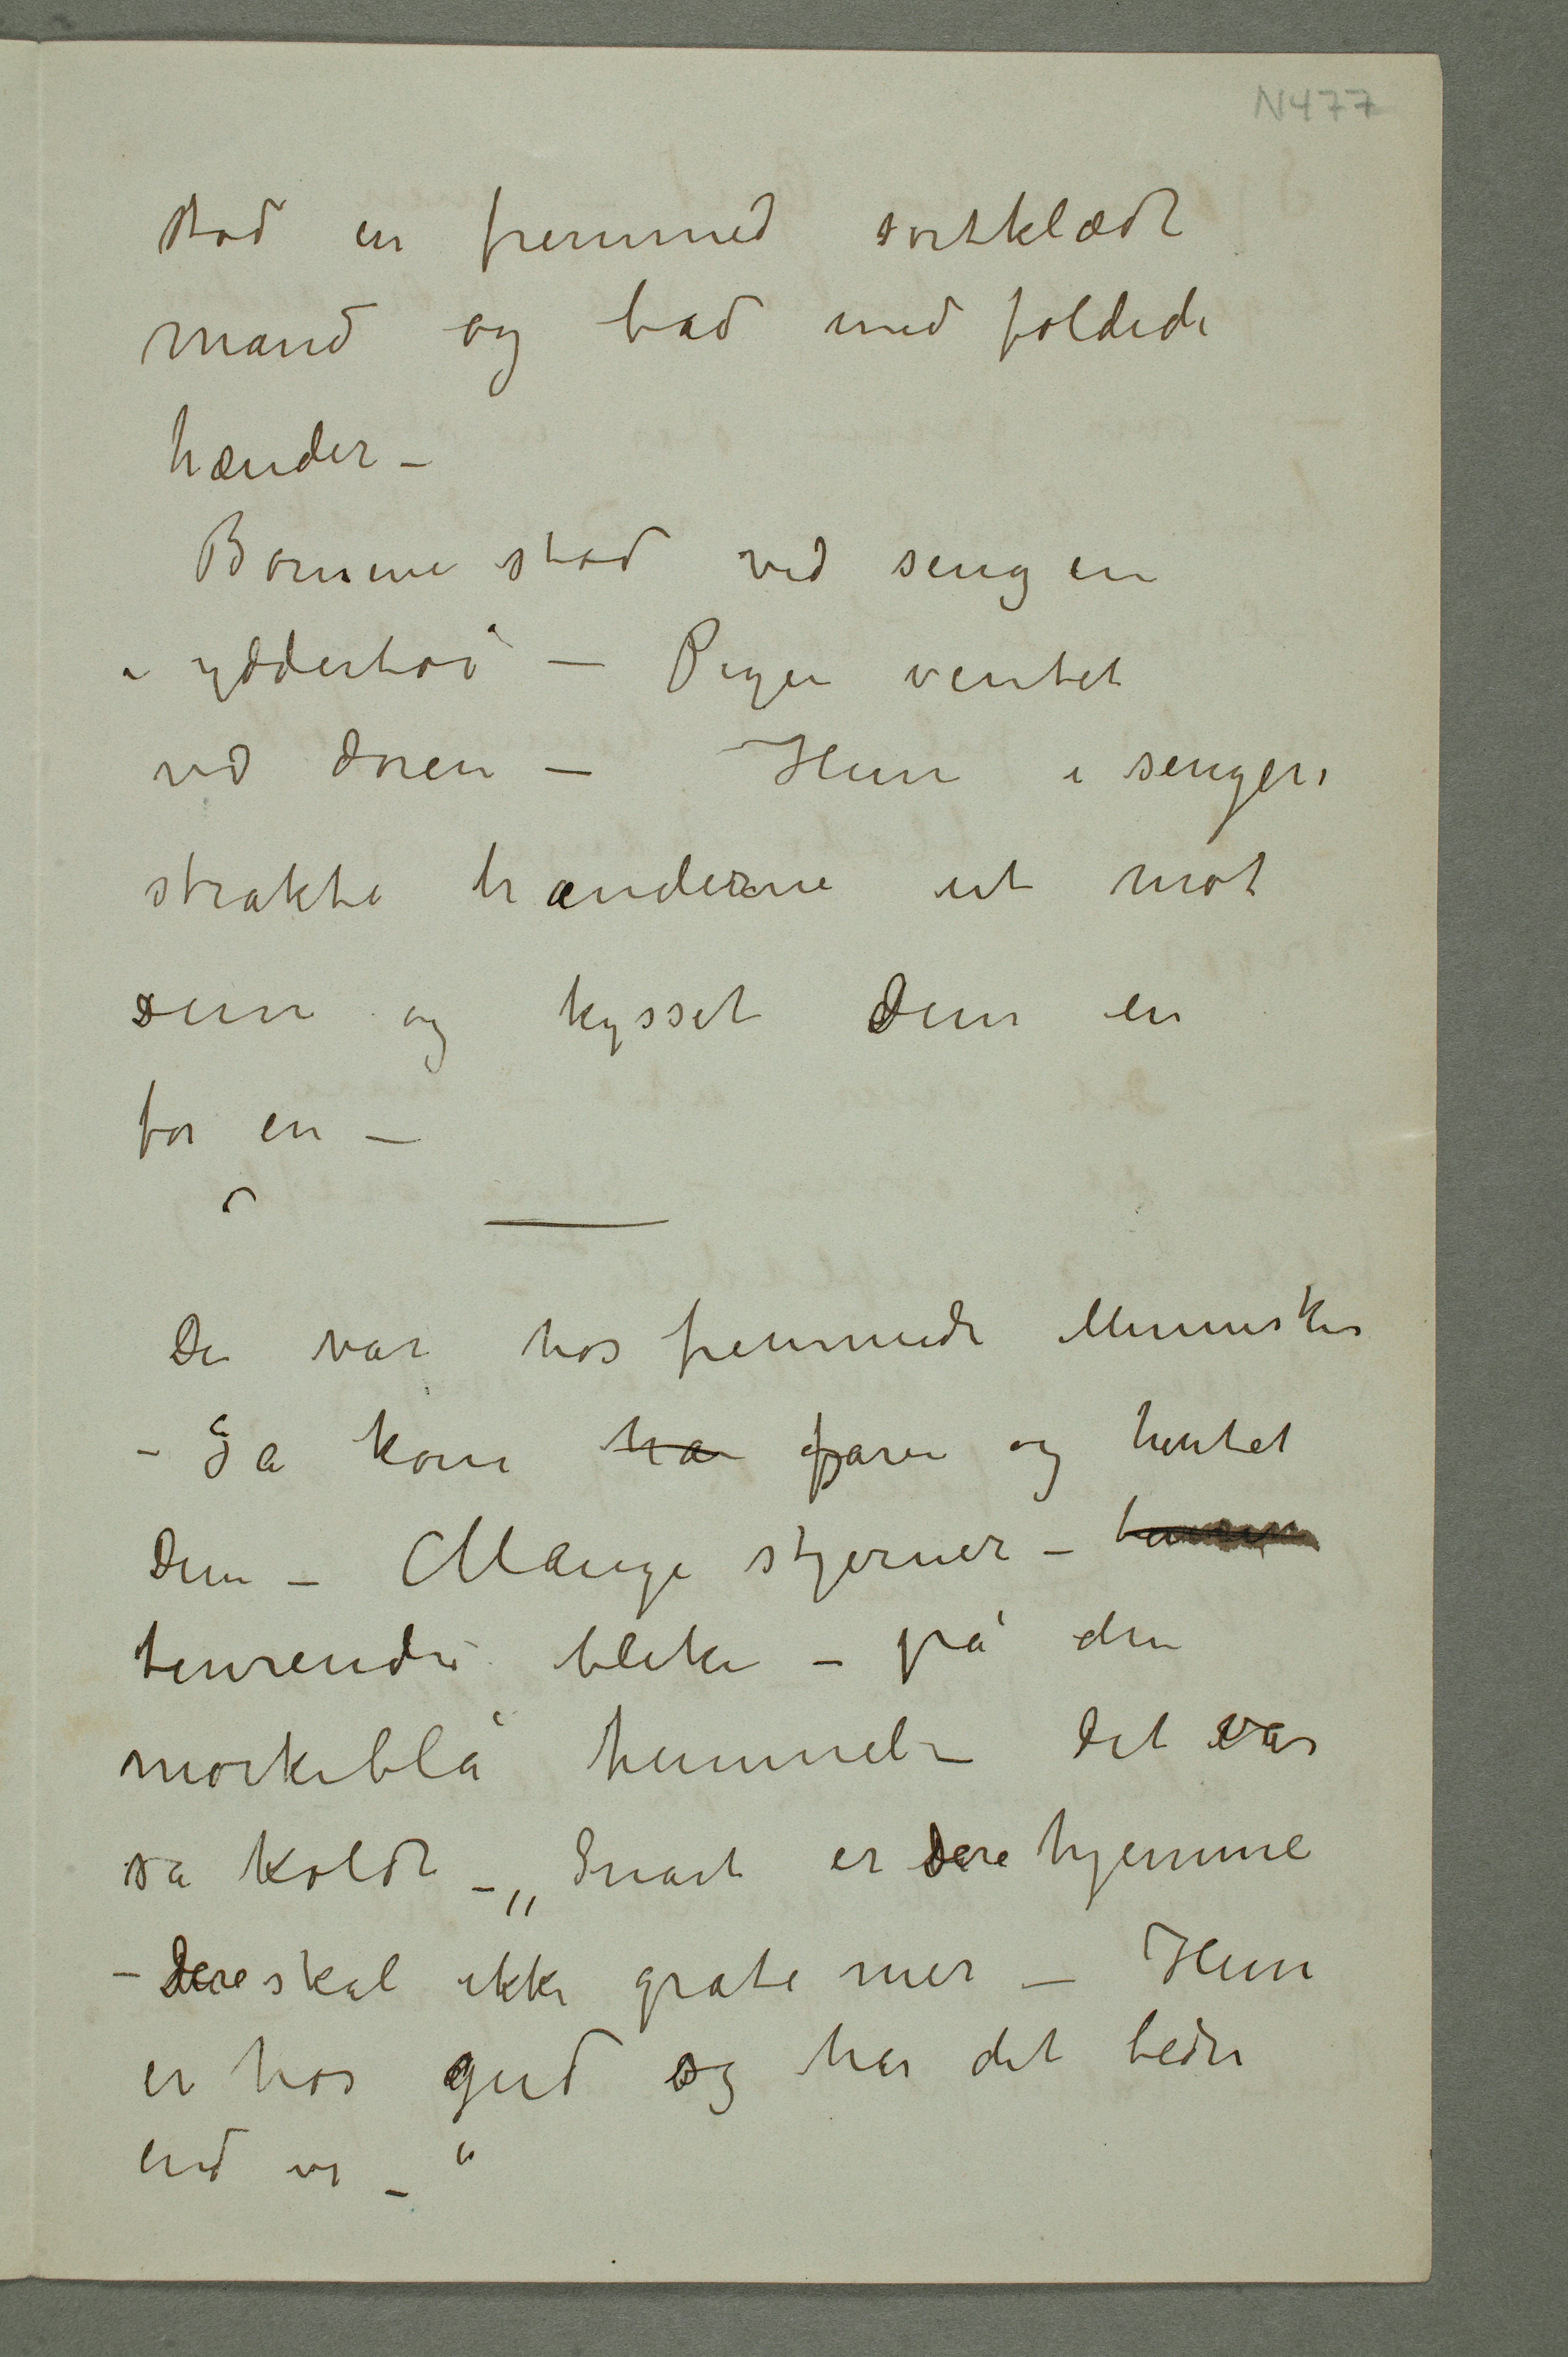 N477
stod en fremmed sortklædt
mand og bad med foldede
hænder –
Børnene stod ved sengen
i yddertøi – Pigen ventet
ved døren – Hun i sengen
strakte hænderne ut mot
dem og kysset dem en
for en –
De var hos fremmede Mennesker
– Så kom ha faren og hentet
dem – Mange stjerner –
tindrende bleke – på den
mørkeblå himmel – det var
så koldt – „Snart er dere hjemme
– dere skal ikke gråte mer – Hun
er hos gud og har det bedre
end vi – “